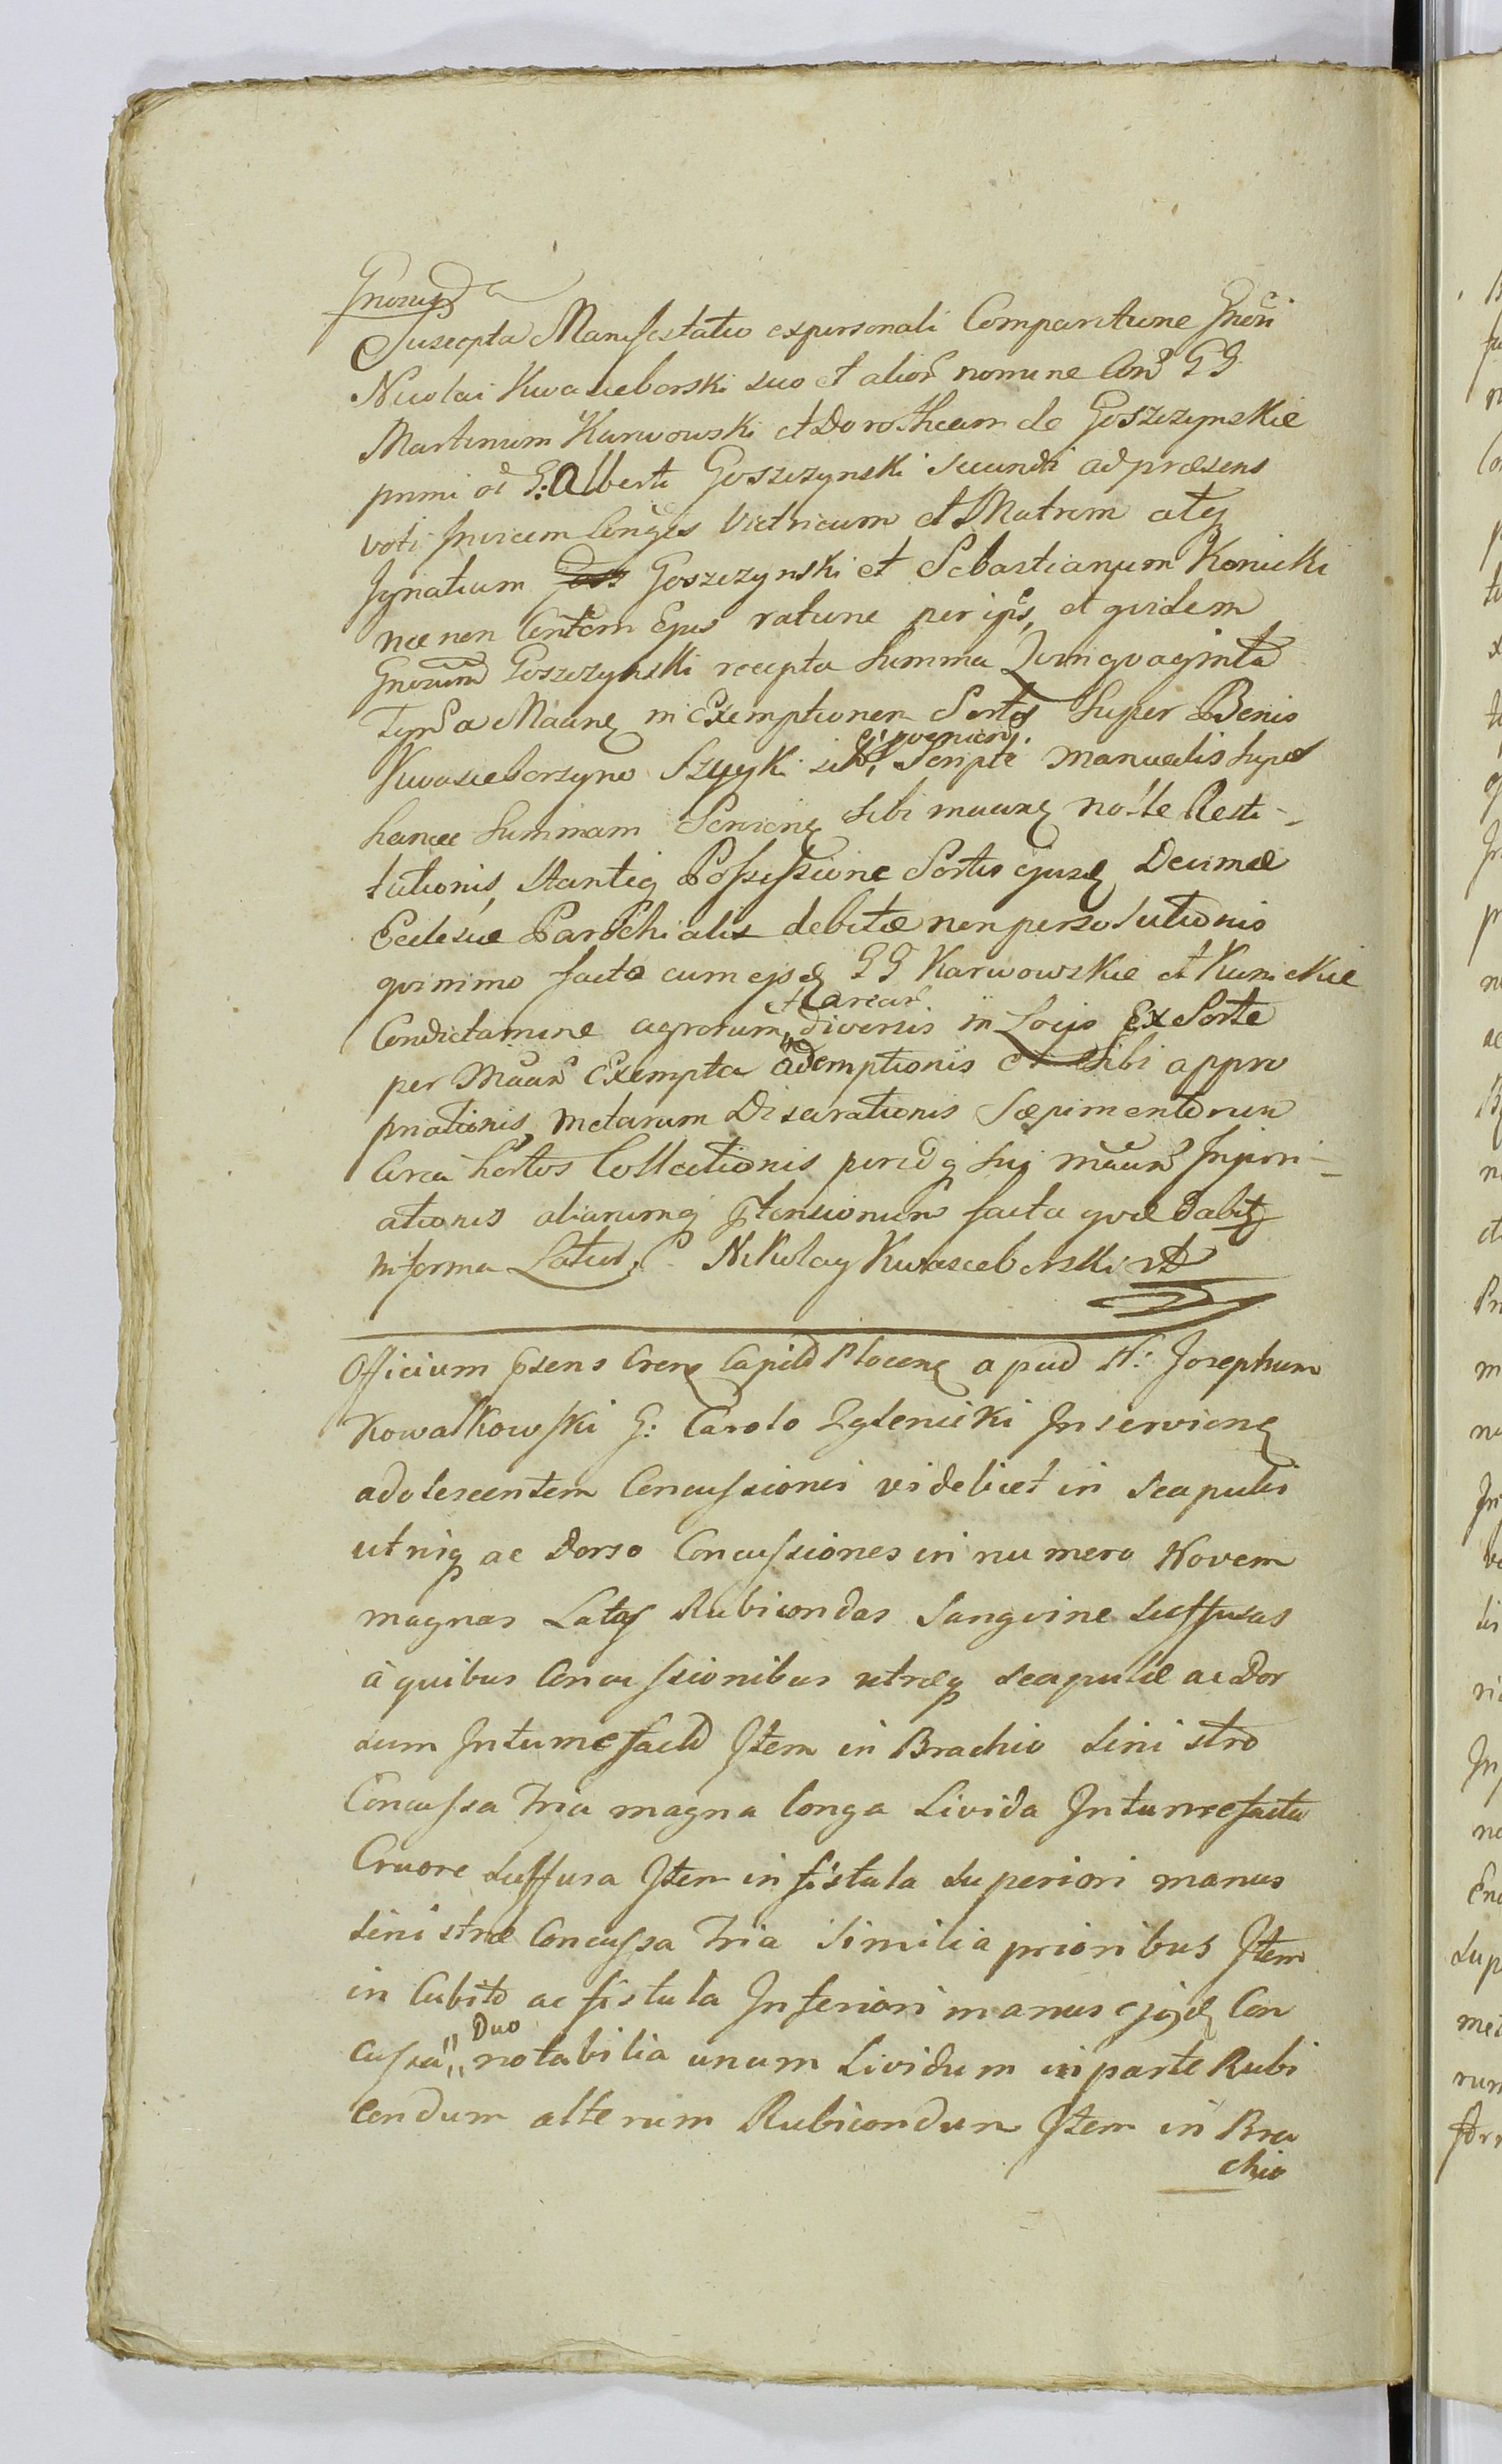 Suscepta Manifestatio expersonali Comparitione Gnĕri
Nicolai Kwasieborski suo et alior nomine Con GG
Martinum Karwowski et Dorotheam de Goszczynskie
primi oĉ G: Alberti Goszczynski secundi ad præsens
voti Invicem Conges Victricum et Matrem atq
Ignatium Goszczynski et Sebastianum Konicki
nec non Contem Ejus ratione per ips, et quidem
Gnorum Goszczynski recepta Summa Quinquaginta
Tymf a Maane in Exemptionem Sortis Super Bonis
Kwasieborzyno Szzyki Scripti manualis super
hancce Summam Serviene Sibi maane no-te Resti-
tutionis, Stanteq Possessione Sortis ejusd Decimæ
Eclesiæ Parochialis debitæ non persolutionis
quinimo facta cum ejsd GG Karwowskie et Kunickie
et arear
Condictamine agrorum,, diversis in Locis Ex Sorte
per Maan Exempta ademptionis et Sibi appro
priationis, metarum Disarationis Sæpimentorum
Circa hortos Collectionis periq sui maan Injuri-
ationis aliarumq ptensionum facta quæ dabit
in forma Latius. Nikolay Kwasieborski
Officium psens Crens Capitt Plocens apud H: Josephum
Kowalkowski G: Carolo Zglenicki Inserviens
adolescentem Concussiones videlicet in Scapulis
utriq ac Dorso Concussiones in numero Novem
magnas Latas Rubicondas Sanguine suffusas
à quibus Concussionibus utræq scapulæ ac Dor
sum Intumefacto Item in Brachio sinistro
Concussa Tria magna longa Livida Intumefacta
Cruore suffusa Item in fistula superiori manus
sinistræ Concussa Tria similia prioribus Item
in Cubito ac fistula Inferiori manus ejusd Con
Duo
cussa,, notabilia unum Lividum in parte Rubi
condum alterum Rubicondum Item in Bra
chio